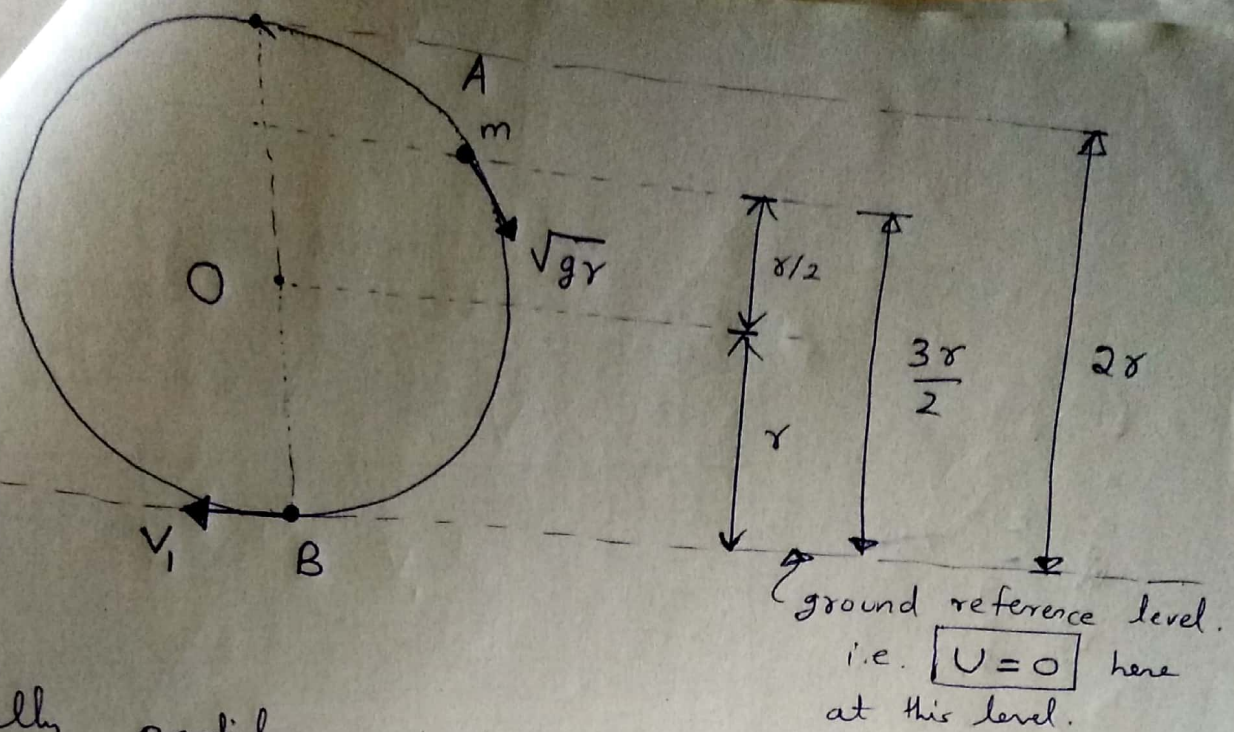 A
m
√gr
O
r/2
r
3r/2
2r
V₁
B
ground reference level.
i.e. U = 0 here
at this level.